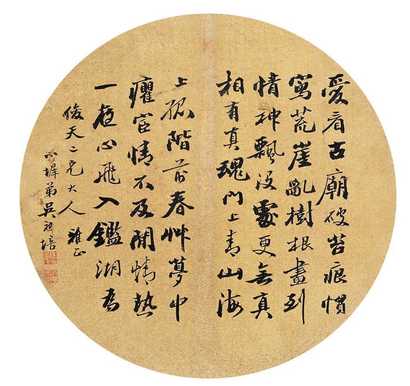 愛看古廟破苔痕慣
寫荒崖亂樹根畫到
情神飄沒處更無真
相有真魂門上青山海
上孤階前春艸夢中
癯官情不及閒情熱
一夜心飛入鑑湖
俊天二兄大人雅正
墀弟吳培